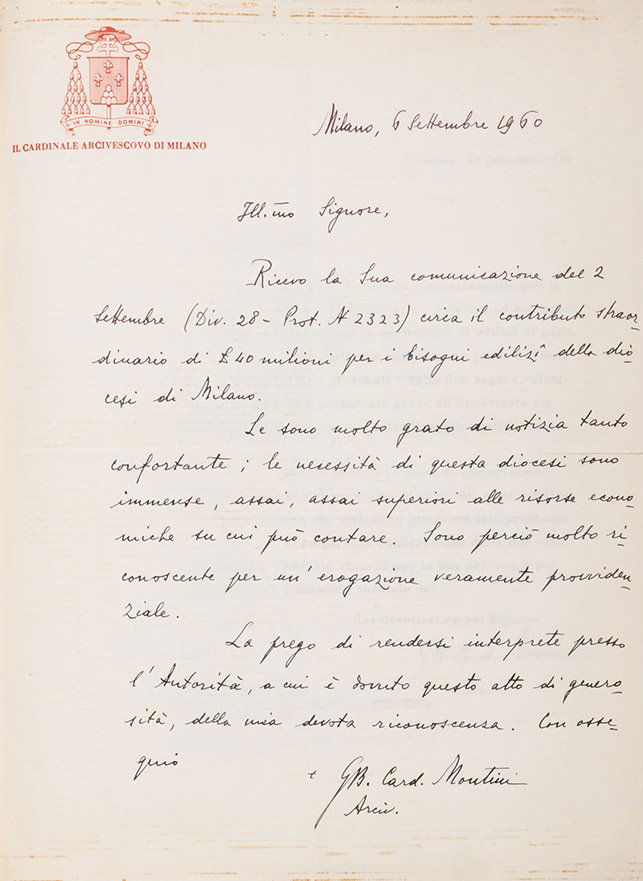 IN NOMINE DOMINI
IL CARDINALE ARCIVESCOVO DI MILANO
Milano, 6 Settembre 1960
Ill.mo Signore,
Ricevo la Sua comunicazione del 2
Settembre (Div. 28 - Prot. N 2323) circa il contributo straor
dinario di £ 40 milioni per i bisogni edilizî della dio=
cesi di Milano.
Le sono molto grato di notizia tanto
confortante; le necessità di questa diocesi sono
immense, assai, assai superiori alle risorse econo
miche su cui può contare. Sono perciò molto ri
conoscente per un'erogazione veramente provviden
ziale.
La prego di rendersi interprete presso
l'Autorità, a cui è dovuto questo atto di genero
sità, della mia devota riconoscenza. Con osse=
quio
+ GB. Card. Montini
Arciv.